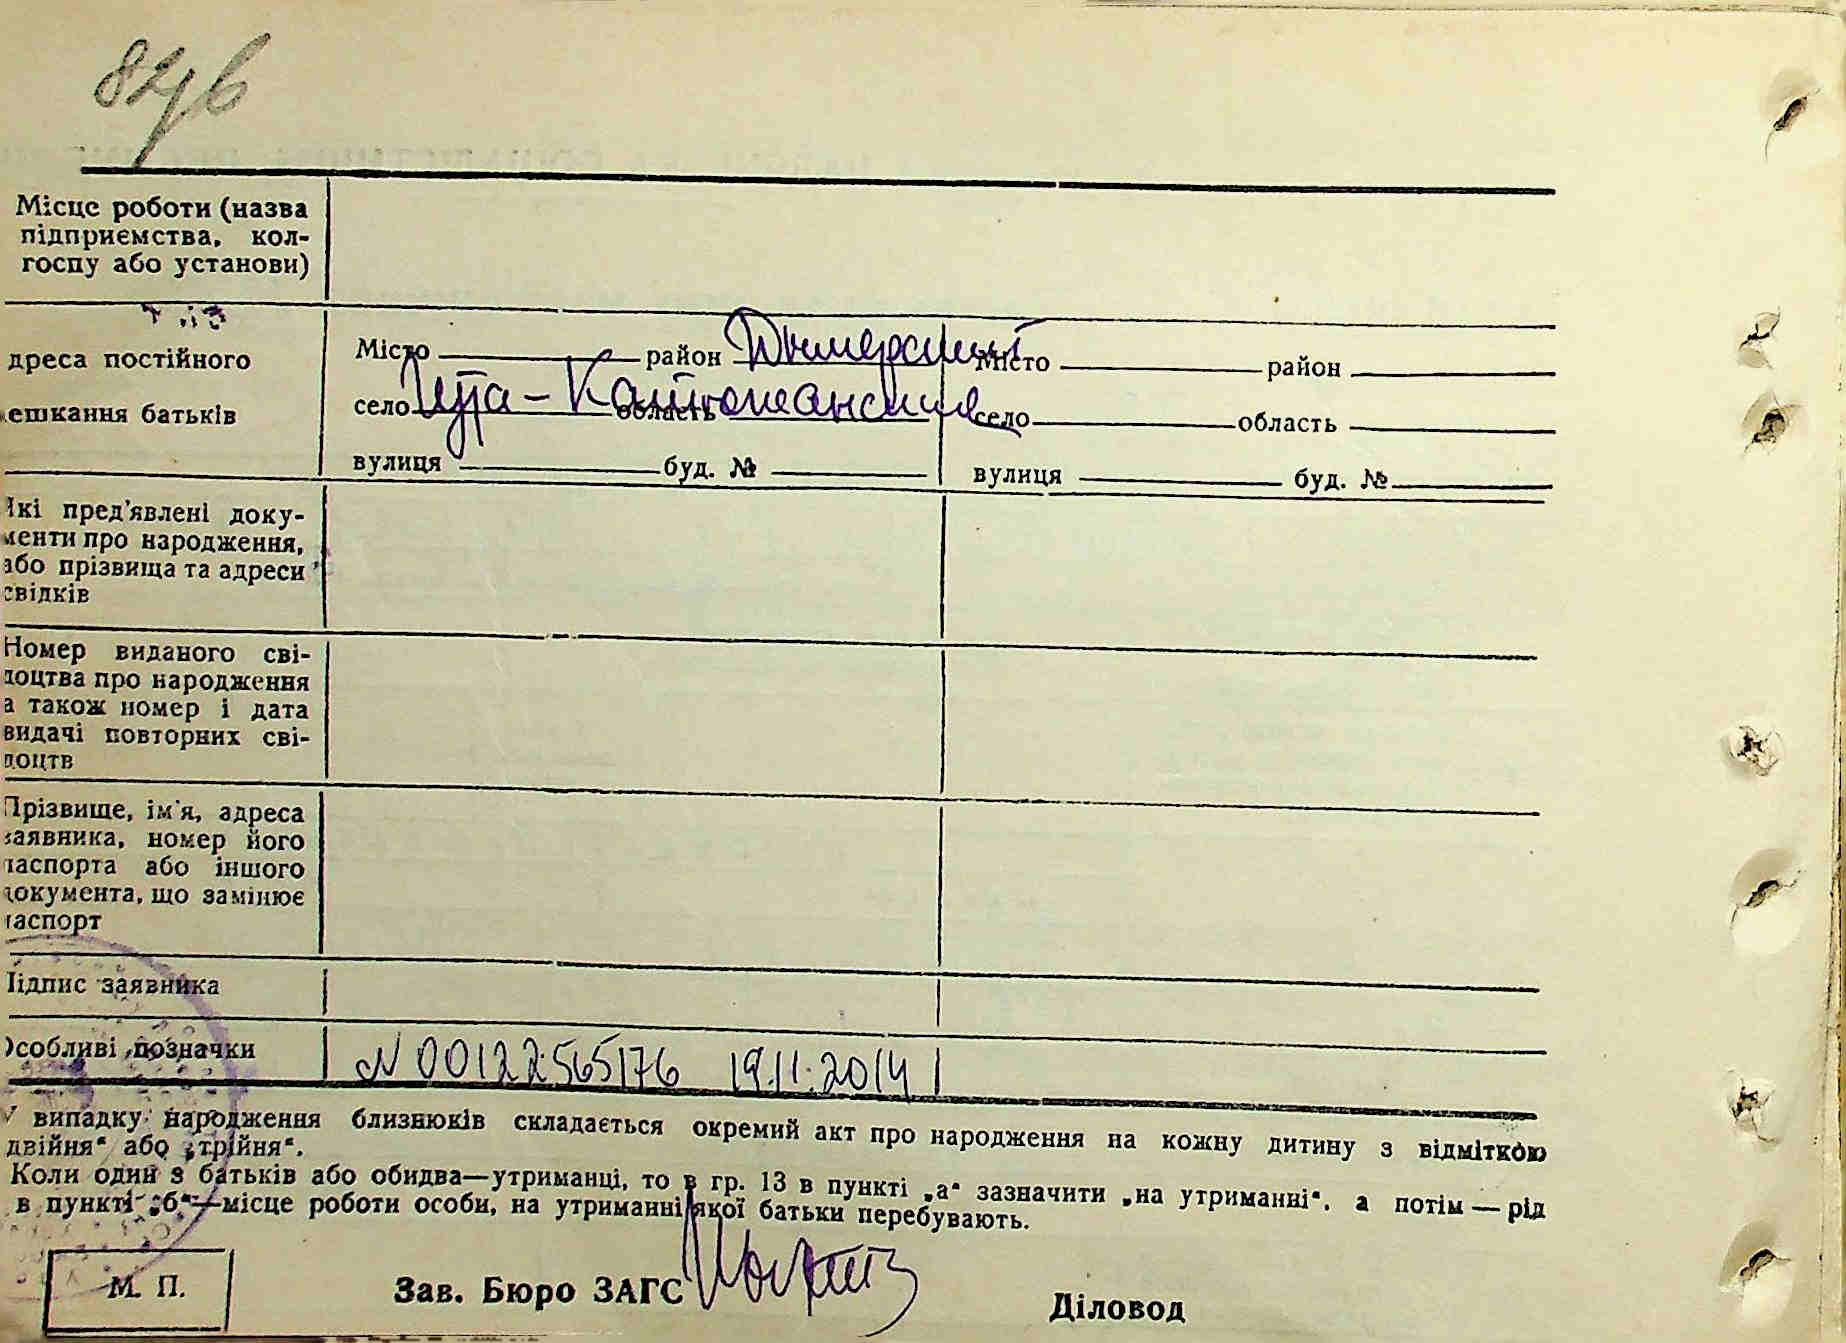 82 зв
Місце роботи (назва
підприємства, кол-
госпу або установи)
дреса постійного
ешкання батьків
Місто район Дымерский
село Гута-Катюжанская область
вулиця буд. №
Місто район
село область
вулиця буд. №
Які пред'явлені доку-
менти про народження,
або прізвища та адреси
свідків
Номер виданого сві-
доцтва про народження
а також номер і дата
видачі повторних сві-
доцтв
Прізвище, ім'я, адреса
заявника, номер його
паспорта або іншого
документа, що замінює
паспорт
Підпис заявника
Особливі позначки
N 00122565176 19.11.2014
У випадку народження близнюків складається окремий акт про народження на кожну дитину з відміткою
двійня“ або „трійня“.
Коли один з батьків або обидва—утриманці, то в гр. 13 в пункті „а“ зазначити „на утриманні“, а потім — рід
в пункті „б“—місце роботи особи, на утриманні якої батьки перебувають.
М. П.
Зав. Бюро ЗАГС
Діловод